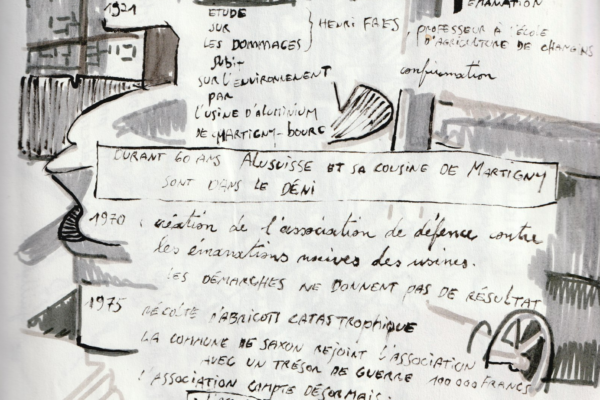 1921
ETUDE
SUR
LES DOMMAGES
SUBIT
SUR L'ENVIRONEMENT
PAR
L'USINE D'ALUMINIUM
DE MARTIGNY-BOURG
HENRI FAES
EMANATION
PROFESSEUR À L'ÉCOLE
D'AGRICULTURE DE CHANGINS
confirmation
DURANT 60 ANS ALUSUISSE ET SA COUSINE DE MARTIGNY
SONT DANS LE DÉNI
1970 : création de l'association de défence contre
les émanations nocives des usines.
LES DÉMARCHES NE DONNENT PAS DE RÉSULTAT
1975 RÉCOLTE D'ABRICOTS CATASTROPHIQUE
LA COMMUNE DE SAXON REJOINT L'ASSOCIATION
AVEC UN TRÉSOR DE GUERRE 100 000 FRANCS
L'ASSOCIATION COMPTE DÉSORMAIS :